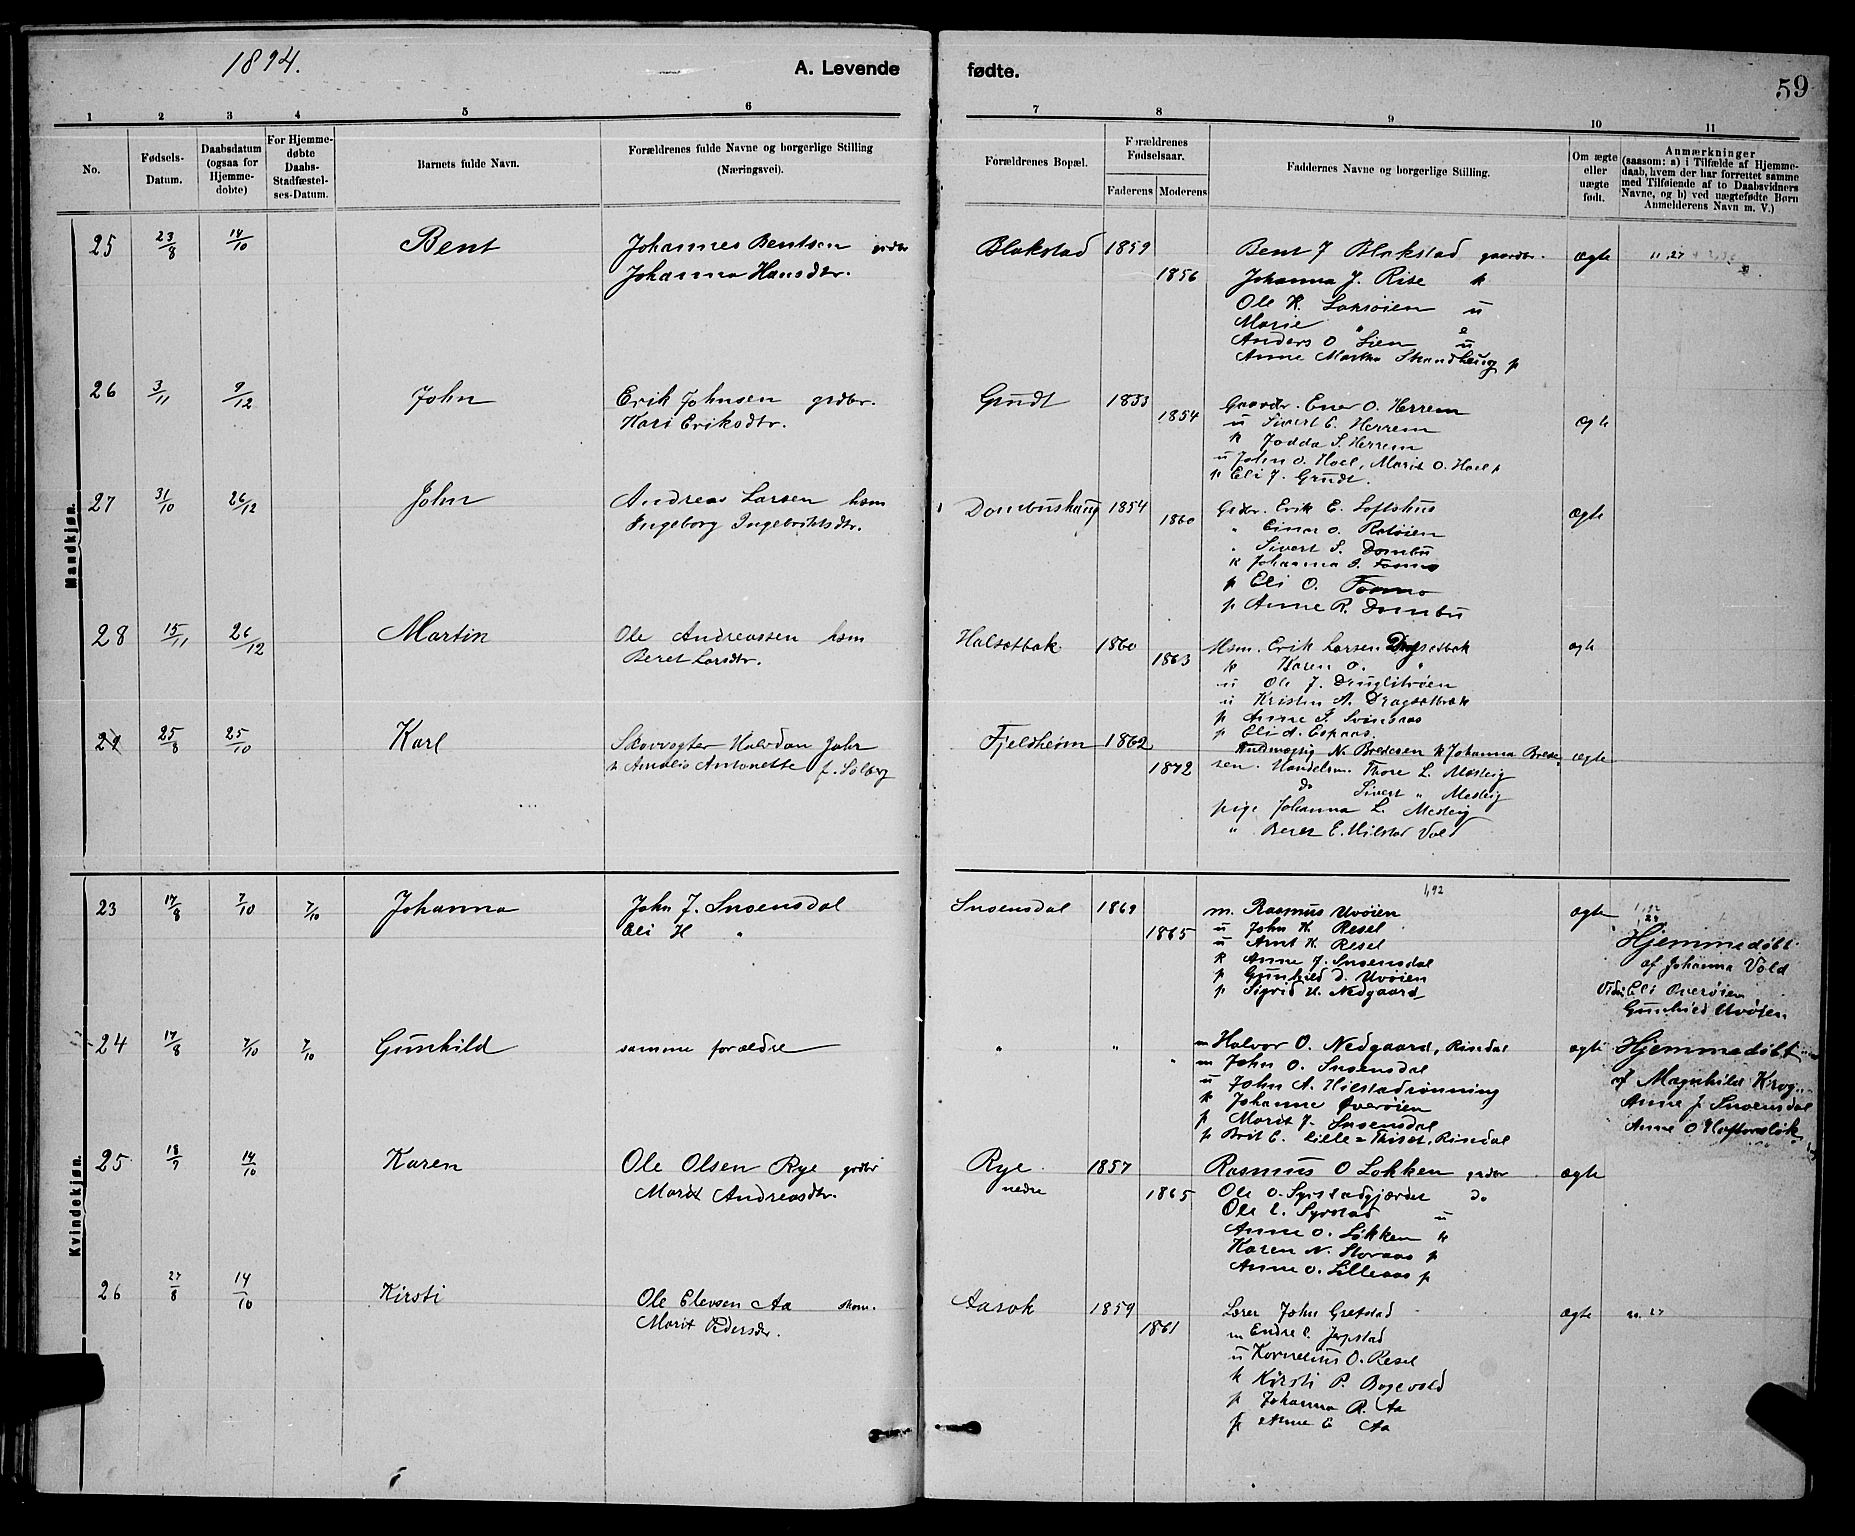 1894.
A. Levende
fødte.
59
1 2 3 4 5 6 7 8 9 10 11
No.
Fødsels-
Datum.
Daabsdatum
(ogsaa for
Hjemme-
døbte)
For Hjemme-
døbte
Daabs-
Stadfæstel-
ses-Datum.
Barnets fulde Navn.
Forældrenes fulde Navne og borgerlige Stilling
(Næringsvei).
Forældrenes Bopæl.
Forældrenes
Fødselsaar.
Faderens Moderens
Faddernes Navne og borgerlige Stilling.
Om ægte
eller
uægte
født.
Anmærkninger
(saasom: a) i Tilfælde af Hjemme-
daab, hvem der har forrettet samme
med Tilføiende af to Daabsvidners
Navne, og b) ved uægtefødte Børn
Anmelderens Navn m. V.)
Mandkjøn.
25 23/8 14/10 Bent
Johannes Bentsen
Johanna Hansdtr.
Blokstad 1859
1856
Bent J Blokstad gaardbr.
Johanna J. Rise k
Ole K. u
Marie "
Anders O Lien u
Anne Martha p
ægte
11,27
26 3/11 9/12 John
Erik Johnsen grdbr.
Kari Eriksdtr.
Grudt 1853
1854
Gaardbr. Ener O. Herrem
u Sivert E. Herrem
k Jodda S. Herrem
u John O. Hoel, Marit O. Hoel p
p Eli J. Grudt.
ægte
27 31/10 26/12 John
Andreas Larsen hsm
Ingeborg Ingebrigtsdtr.
Dombushaug 1854
1860
Grdbr. Erik E. Loftshus
" Einar O. Ratøien
" Sivert S. Dombu
k Johanna
p Eli O.
p Anne R. Dombu
ægte
28 15/11 26/12 Martin
Ole Andreassen hsm
Beret Larsdtr.
Halsetbak 1860
1863
Hsm. Erik Larsen
k Karen O. "
u Ole J.
u Kristen A. Dragsetbak
p Anne J. Svinsaas
p Eli A. Espaas.
ægte
29 25/8 25/10 Karl
Skovvogter Halvdan Johr
h Amalie Antonette f. Solberg
Fjeldheim 1862
1872
N. Bredesen k Johanna Brede-
sen. Handelsm. Thore L. Meslvig
do Sivert " Meslvig
pige Johanna L. Meslvig
" Beret E. Hilstad Vold
ægte
Kvindekjøn.
23 17/8 7/10 7/10 Johanna
John J. Snoensdal
Eli H "
Snoensdal 1869
1865
1,92
m. Rasmus Uvøien
u John K. Resel
u Arnt K Resel
k Anne J. Snoensdal
p Gunhild D. Uvøien
p Sigrid H. Nedgaard
ægte
Hjemmedøbt
af Johanna Vold
Vidn: Eli Øverøien
Gunhild Uvøien
24 17/8 7/10 7/10 Gunhild
samme forældre
" " "
m Halvor O. Nedgaard, Rindal
m John O. Snoensdal
u John A. Hilstadrønning
k Johanne Øverøien
p Marit J. Snoensdal
p Brit E. Lille-Thiset, Rindal
ægte
Hjemmedøbt
af Magnhild Krog
Anne J Snoensdal
Anne O
25 18/9 14/10 Karen
Ole Olsen Rye grdbr
Marit Andreasdtr.
Rye
nedre
1857
1865
Rasmus O Løkken grdbr
Ole O. Syrstadgjærdet do
Ole E. Syrstad u
Anne O. Løkken k
Karen N. Storaas p
Anne O. Lilleaas p
ægte
26 27/8 14/10 Kirsti
Ole Elevsen Aa skom.
Marit Pedersdtr.
Aarok 1859
1861
Lærer John Grefstad
m Endre E. Jerpstad
u Kornelius O. Resel
k Kirsti P. Bogevold
p Johanna R. Aa
p Anne E Aa
ægte